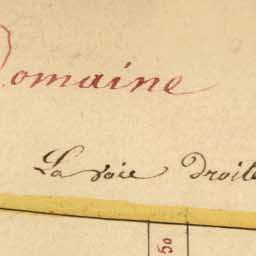 Domaine
La voie Droite
50